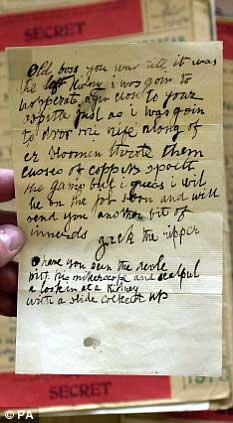 SECRET
Old boss you was rite it was
the left kidny i was goin to
hoperate agin close to your
ospitle just as i was goin
to dror mi nife along of
er bloomin throte them
cusses of coppers spoilt
the game but i guess i wil
be on the job soon and will
send you another bit of
innerds
Jack the ripper
O have you seen the devle
with his mikerscope and scalpul
a lookin at a Kidney
with a slide cocked up
SECRET
© PA